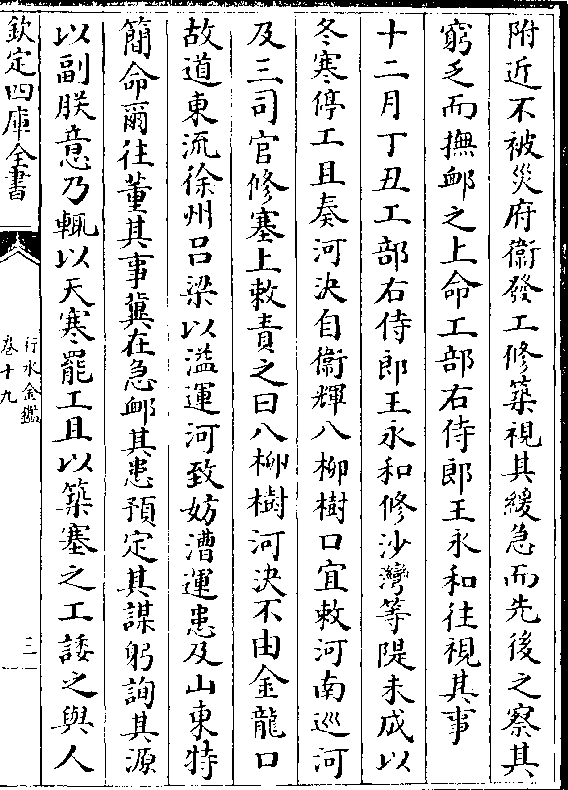 附近不被災府衞發工修築視其緩急而先後之察其
窮乏而撫䘏之上命工部右侍郎王永和往視其事
十二月丁丑工部右侍郎王永和修沙灣等隄未成以
冬寒停工且奏河決自衞輝八柳樹口宜敕河南巡河
及三司官修塞上敕責之曰八柳樹河決不由金龍口
故道東流徐州吕梁以溢運河致妨漕運患及山東特
簡命爾往董其事冀在急䘏其患預定其謀躬詢其源
以副朕意乃輒以天寒罷工且以築塞之工諉之與人
欽定四庫全書
行水金鑑
卷十九
三